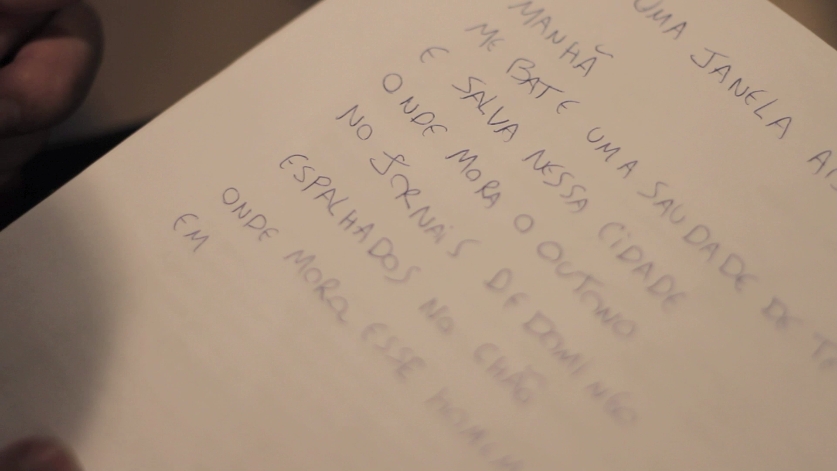 UMA JANELA
MANHÃ
ME BATE UMA SAUDADE DE
E SALVA NESSA CIDADE
ONDE MORA O OUTONO
NO JORNAIS DE DOMINGO
ESPALHADOS NO CHÃO
ONDE MORA ESSE HOMEM
EM